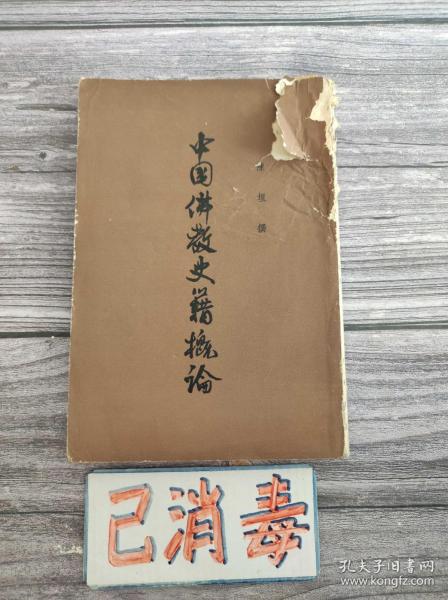 陳垣撰
中国佛教史籍概論
已消毒
孔夫子旧书网
www.kongfz.com